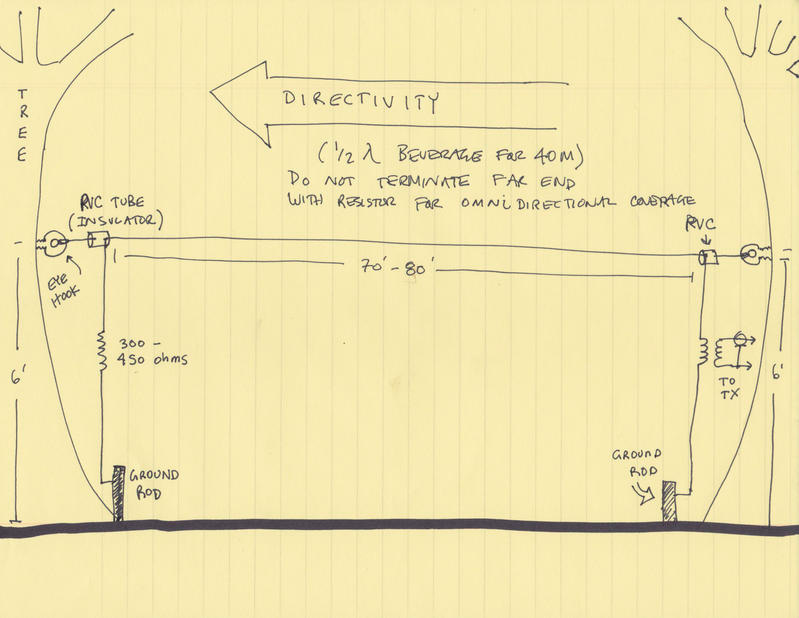 TREE
DIRECTIVITY
(1/2 λ BEVERAGE FOR 40M)
DO NOT TERMINATE FAR END
WITH RESISTOR FOR OMNIDIRECTIONAL COVERAGE
PVC TUBE
(INSULATOR)
PVC
EYE
HOOK
70' - 80'
300 -
450 ohms
6'
TO
TX
6'
GROUND
ROD
GROUND
ROD